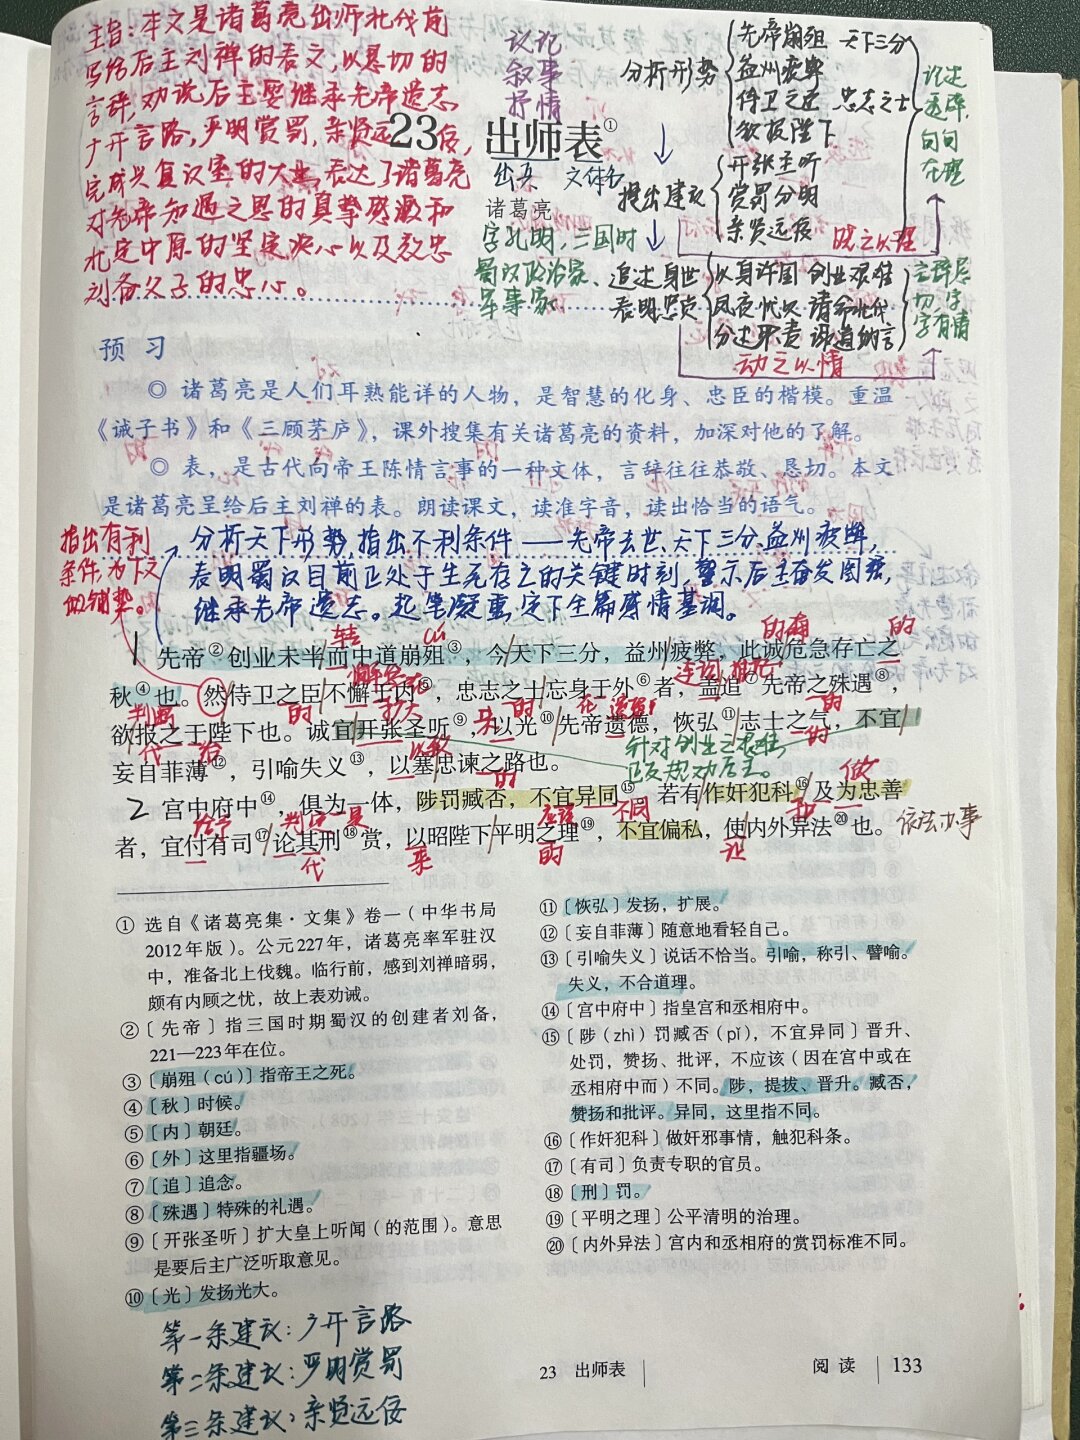 主旨:本文是诸葛亮出师北伐前
写给后主刘禅的表文,以恳切的
言辞,劝说后主要继承先帝遗志
广开言路,严明赏罚,亲贤远佞,
完成兴复汉室的大业,表达了诸葛亮
对先帝知遇之恩的真挚感激和
北定中原的坚定决心以及效忠
刘备父子的忠心。
议论
叙事
抒情
23 出师表①
出兵 文体名
诸葛亮
字孔明,三国时
蜀汉政治家、
军事家
分析形势
先帝崩殂 天下三分
益州疲弊
侍卫之臣 忠志之士
欲报陛下
提出建议
开张圣听
赏罚分明
亲贤远佞
晓之以理
论述
透辟,
句句
在理
追述身世
表明忠贞
以身许国 创业艰难
夙夜忧叹 请命北伐
分述职责 诹道纳言
动之以情
言辞恳
切,字
字有情
预 习
◎ 诸葛亮是人们耳熟能详的人物,是智慧的化身、忠臣的楷模。重温
《诫子书》和《三顾茅庐》,课外搜集有关诸葛亮的资料,加深对他的了解。
◎ 表,是古代向帝王陈情言事的一种文体,言辞往往恭敬、恳切。本文
是诸葛亮呈给后主刘禅的表。朗读课文,读准字音,读出恰当的语气。
指出有利
条件,为下文
做铺垫。
分析天下形势,指出不利条件——先帝去世、天下三分、益州疲弊,
表明蜀汉目前正处于生死存亡的关键时刻,警示后主奋发图强,
继承先帝遗志。起笔凝重,定下全篇感情基调。
转 cú 的确 的
1 先帝②创业未半而中道崩殂③,今天下三分,益州疲弊,此诚危急存亡之
秋④也。然侍卫之臣不懈于内⑤,忠志之士忘身于外⑥者,盖追⑦先帝之殊遇⑧,
判断 的 扩大 来 的 的
欲报之于陛下也。诚宜开张圣听⑨,以光⑩先帝遗德,恢弘⑪志士之气,不宜
代 以致 的
针对创业之艰难
正反热劝后主。
妄自菲薄⑫,引喻失义⑬,以塞忠谏之路也。
的 做
2 宫中府中⑭,俱为一体,陟罚臧否,不宜异同⑮。若有作奸犯科⑯及为忠善
给予 应该 不同 和
者,宜付有司⑰论其刑⑱赏,以昭陛下平明之理⑲,不宜偏私,使内外异法⑳也。依法办事
代 来 的 让
① 选自《诸葛亮集·文集》卷一(中华书局
2012年版)。公元227年,诸葛亮率军驻汉
中,准备北上伐魏。临行前,感到刘禅暗弱,
颇有内顾之忧,故上表劝诫。
②〔先帝〕指三国时期蜀汉的创建者刘备,
221—223年在位。
③〔崩殂(cú)〕指帝王之死。
④〔秋〕时候。
⑤〔内〕朝廷。
⑥〔外〕这里指疆场。
⑦〔追〕追念。
⑧〔殊遇〕特殊的礼遇。
⑨〔开张圣听〕扩大皇上听闻(的范围)。意思
是要后主广泛听取意见。
⑩〔光〕发扬光大。
⑪〔恢弘〕发扬,扩展。
⑫〔妄自菲薄〕随意地看轻自己。
⑬〔引喻失义〕说话不恰当。引喻,称引、譬喻。
失义,不合道理。
⑭〔宫中府中〕指皇宫和丞相府中。
⑮〔陟(zhì)罚臧否(pǐ),不宜异同〕晋升、
处罚,赞扬、批评,不应该(因在宫中或在
丞相府中而)不同。陟,提拔、晋升。臧否,
赞扬和批评。异同,这里指不同。
⑯〔作奸犯科〕做奸邪事情,触犯科条。
⑰〔有司〕负责专职的官员。
⑱〔刑〕罚。
⑲〔平明之理〕公平清明的治理。
⑳〔内外异法〕宫内和丞相府的赏罚标准不同。
第一条建议:广开言路
第二条建议:严明赏罚
第三条建议:亲贤远佞
23 出师表
阅读 133